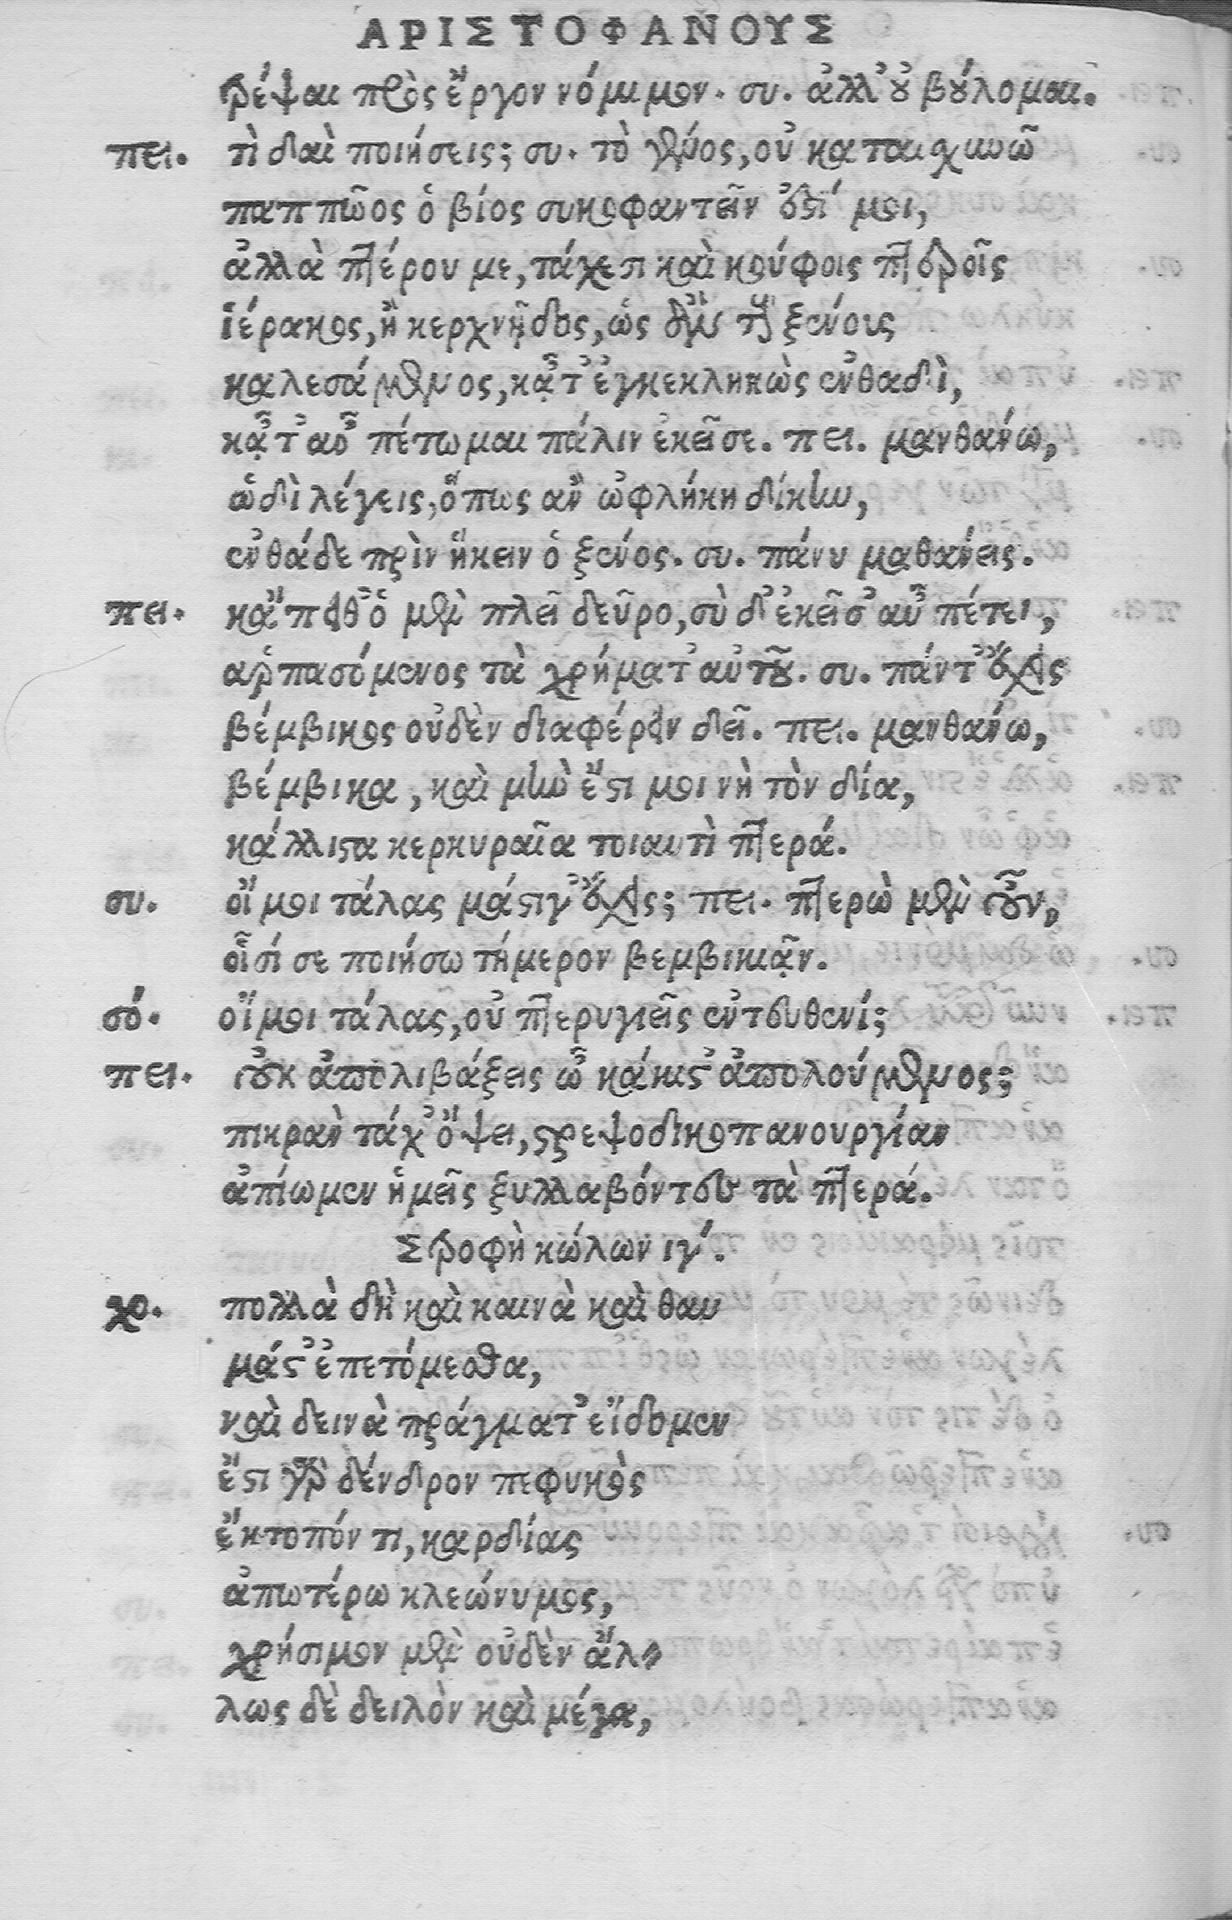 ΑΡΙΣΤΟΦΑΝΟΥΣ
τρέψαι πρὸς ἔργον νόμιμον. συ. ἀλλ' οὐ βούλομαι.
πει. τὶ δαὶ ποιήσεις; συ. τὸ γένος, οὐ καταισχυνῶ
παππῶος ὁ βίος συκοφαντεῖν ἐστί μοι,
ἀλλὰ πτέρου με, τάχεσι καὶ κούφοις πτεροῖς
ἱέρακος, ἢ κερχνῇδος, ὡς ἂν τοὺς ξένους
καλεσάμενος, κᾆτ' ἐγκεκληκὼς ἐνθαδὶ,
κᾆτ' αὖ πέτωμαι πάλιν ἐκεῖσε. πει. μανθάνω,
ὡδὶ λέγεις, ὅπως ἂν ὠφλήκῃ δίκην,
ἐνθάδε πρὶν ἥκειν ὁ ξένος. συ. πάνυ μαθάνεις.
πει. κἄπειθ' ὁ μὲν πλεῖ δεῦρο, σὺ δ' ἐκεῖσ' αὖ πέτει,
ἁρπασόμενος τὰ χρήματ' αὐτοῦ. συ. πάντ' ἔχεις
βέμβικος οὐδὲν διαφέρειν δεῖ. πει. μανθάνω,
βέμβικα, καὶ μὴν ἔστι μοι νὴ τὸν δία,
κάλλιστα κερκυραῖα τοιαυτὶ πτερά.
συ. οἴμοι τάλας μάστιγ' ἔχεις; πει. πτερὼ μὲν οὖν,
οἷσί σε ποιήσω τήμερον βεμβικιᾷν.
σό. οἴμοι τάλας, οὐ πτερυγιεῖς ἐντευθενί;
πει. οὐκ ἀπολιβάξεις ὦ κάκιστ' ἀπολούμενος;
πικρὰν τάχ' ὄψει, στρεψοδικοπανουργίαν
ἀπίωμεν ἡμεῖς ξυλλαβόντες τὰ πτερά.
Στροφὴ κώλων ιγ'.
χο. πολλὰ δὴ καὶ καινὰ καὶ θαυ
μάστ' ἐπετόμεσθα,
καὶ δεινὰ πράγματ' εἴδομεν
ἔστι γὰρ δένδρον πεφυκὸς
ἔκτοπόν τι, καρδίας
ἀπωτέρω κλεώνυμος,
χρήσιμον μὲν οὐδὲν ἄλ-
λως δὲ δειλὸν καὶ μέγα,